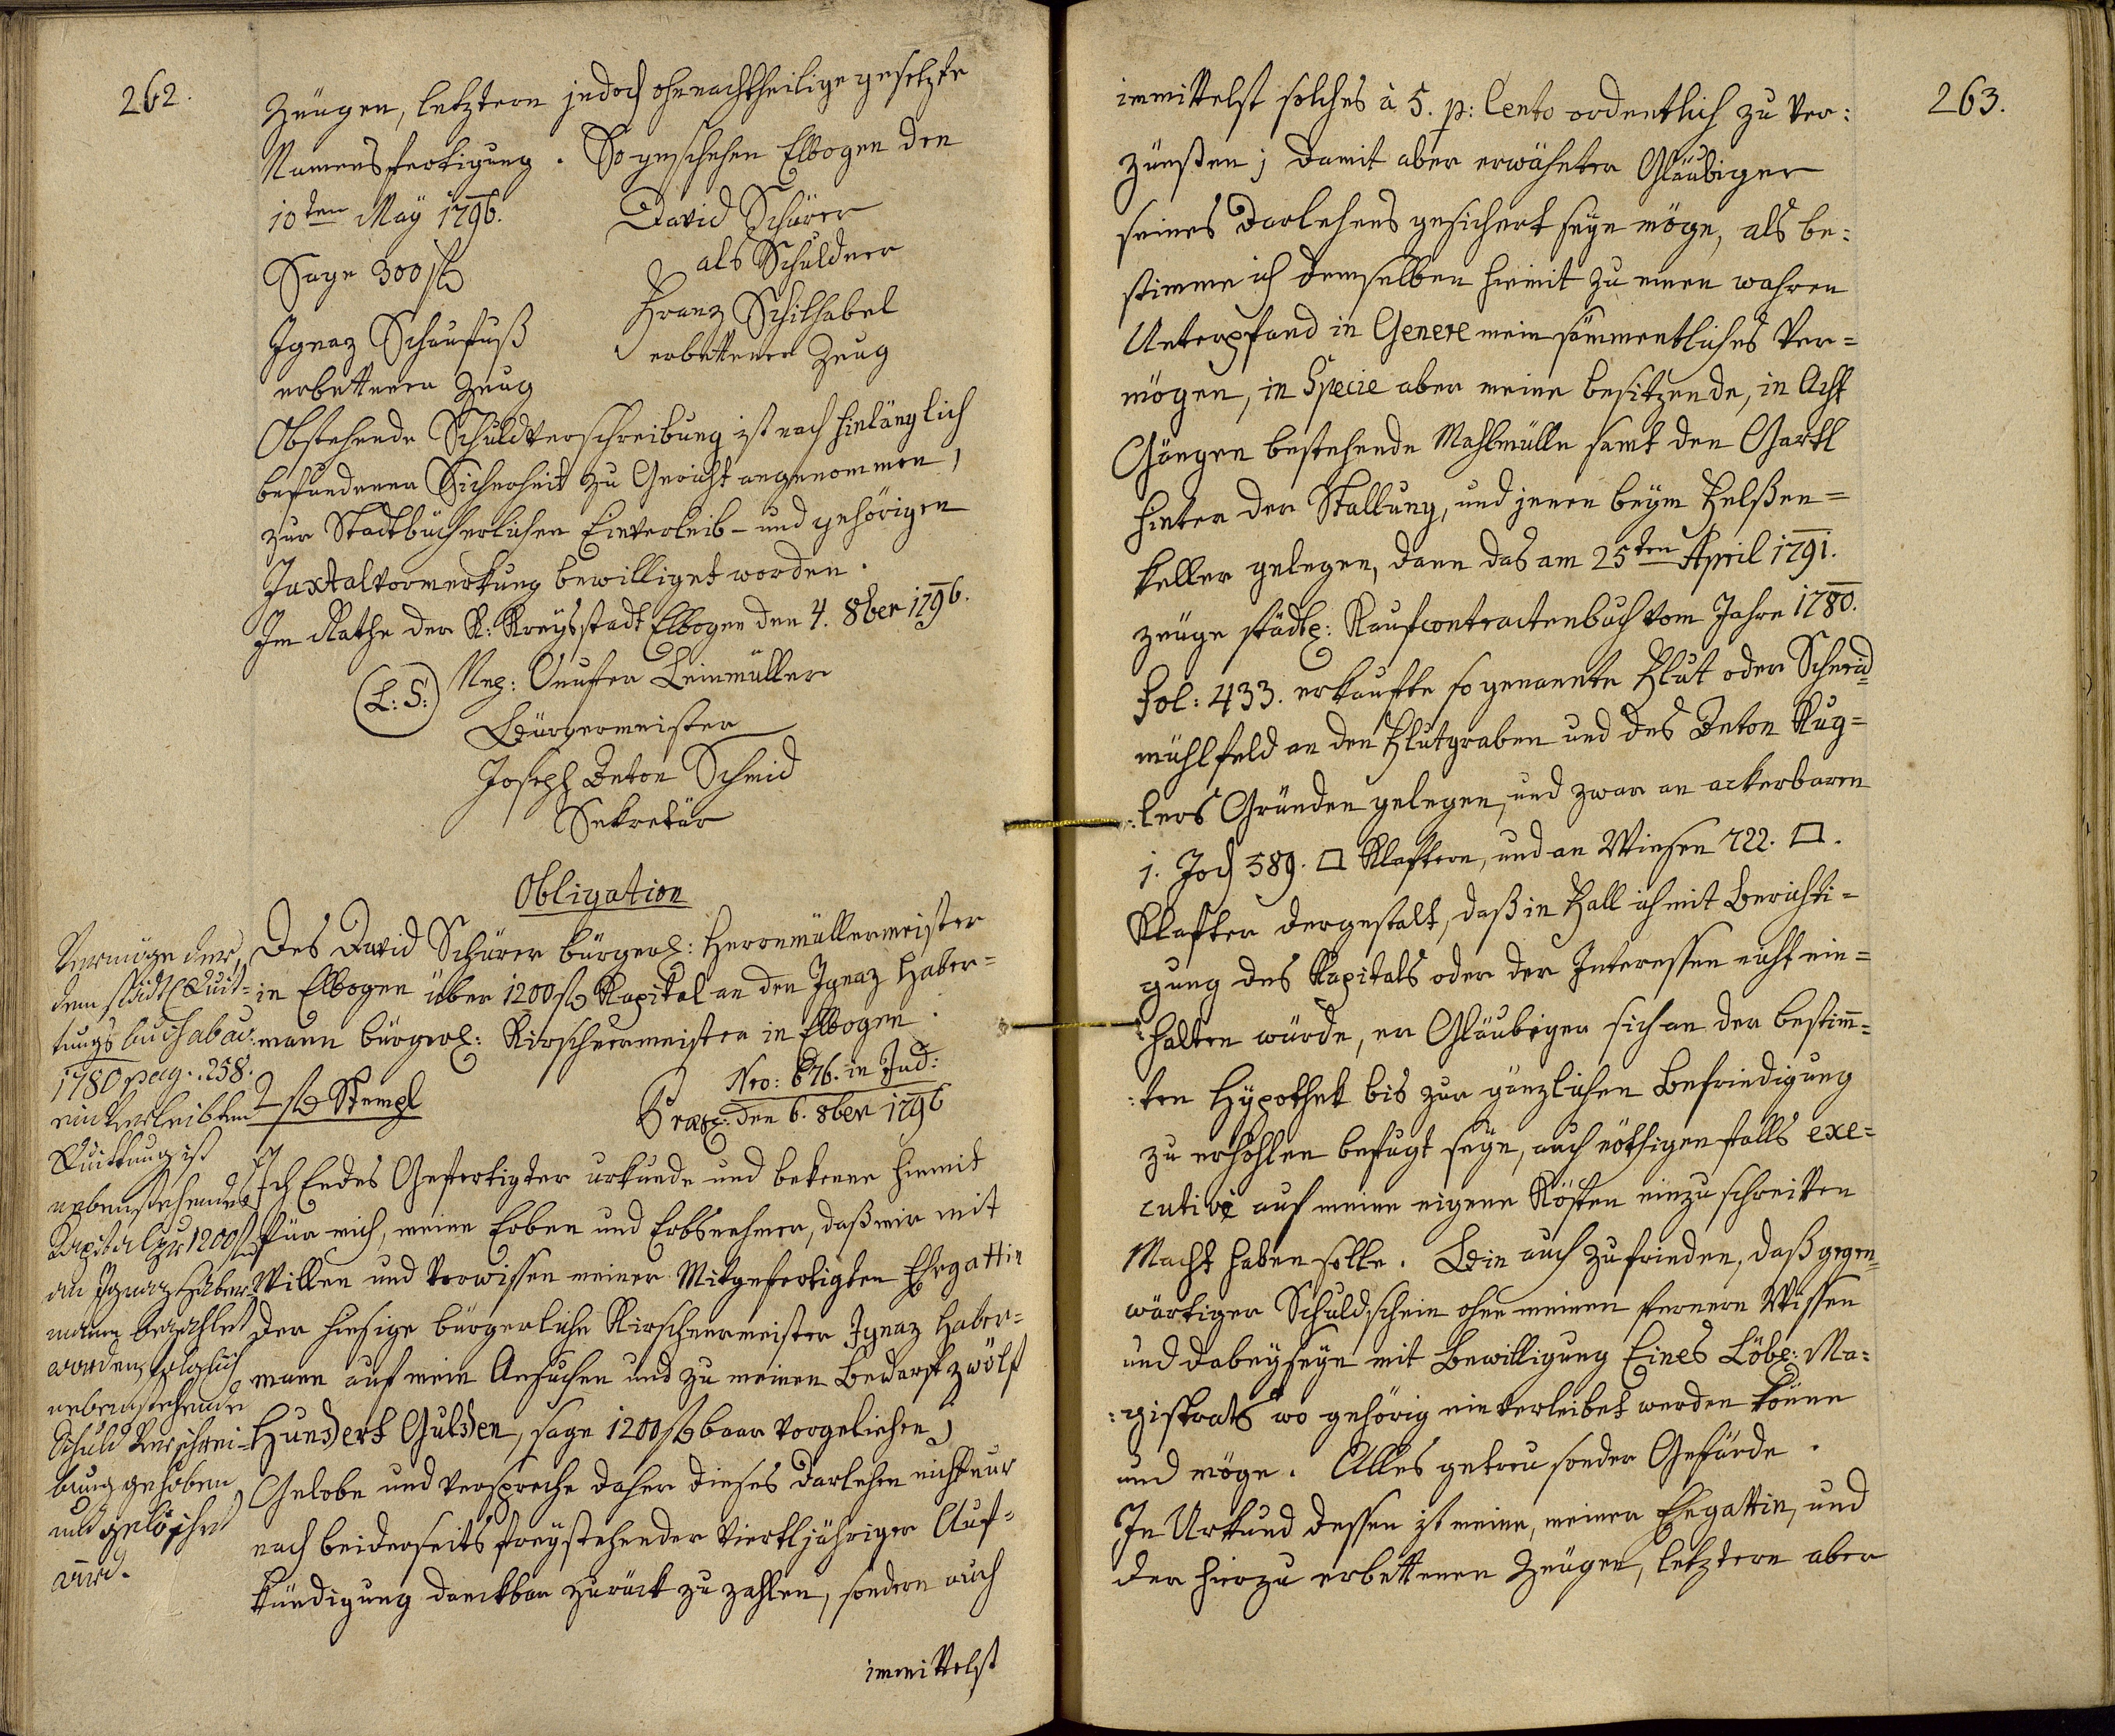 262.
Zeugen, letztern jedoch ohnnachtheilige gesetzte
Namensfertigung. So geschehen Elbogen den
10ten May 1796.
David Schürer
als Schuldner
Sage 300 fl
Franz Schilhabel
erbettener Zeug
Ignaz Schaufuß
erbettener Zeug
Obstehende Schuldverschreibung ist nach hinlänglich
befundener Sicherheit zu Gericht angenommen,
zur Stadtbücherlichen Einverleib- und gehörigen
Juxtalvormerkung bewilliget worden.
Im Rathe der K: Kreysstadt Elbogen den 4. 8ber 1796.
(L:S:)
Leinmüller
Bürgermeister
Joseph Anton Schmid
Sekretär
Obligation
Des David Schürer bürgerl: Herrnmüllermeister
in Elbogen über 1200 fl Kapital an den Ignaz Haber=
mann bürgerl: Kirschnermeister in Elbogen.
2 fl Stempl
Nro: 676. in Jud:
Praes: den 6. 8ber 1796
Ich Endes Gefertigter urkunde und bekenne hiemit
für mich, meine Erben und Erbsnehmer, daß mir mit
Willen und Vorwissen meiner Mitgefertigten Ehegattin
der hiesige bürgerliche Kirschnermeister Ignaz Haber=
mann auf mein Ansuchen und zu meinen Bedarf zwölf
Hundert Gulden, sage 1200 fl baar vorgeliehen,
Gelobe und verspreche daher dieses Darlehen nicht nur
nach beiderseits freystehender viertljähriger Auf=
kündigung danckbar zurück zu zahlen, sondern auch
immittelst
Vermöge der,
dem städtl Quit=
tungsbuch ab ao:
1780 pag. 258.
einverleibten
Quittung ist
nebenstehendes
Kapital pr 1200 fl
an Ignaz Haber=
mann bezahlet
worden, folglich
nebenstehende
Schuld Verschrei=
bung gehoben
und gelöschet
wird.
263.
immittelst solches à 5. p: Cento ordentlich zu ver:
zünßen; damit aber erwähnter Gläubiger
seines Darlehens gesichert seyn möge, als be:
stimme ich demselben hiemit zu einen wahren
Unterpfand in Genere mein sämmentliches Ver=
mögen, in Specie aber meine besitzende, in Acht
Gängen bestehende Mahlmülle samt den Gartl
hinter der Stallung, und jenen beym Felßen=
keller gelegen, dann das am 25ten April 1791.
zeuge städtl: Kaufcontractenbuch vom Jahre 1780.
fol: 433. erkaufte so genannte Flut oder Schneid
mühlfeld an den Flutgraben und des Anton Kug=
:lers Gründen gelegen, und zwar an ackerbaren
1. Joch 389. □ Klaftern, und an Wiesen 722. □.
Klafter dergestalt, daß in Fall ich mit Berichti=
gung des Kapitals oder der Interessen nicht ein=
:halten würde, er Gläubiger sich an der bestim̅=
:ten Hypothek bis zur gänzlichen Befriedigung
zu erhohlen befugt seyn, auch nöthigenfalls exe=
cutive auf meine eigene Kösten einzuschreiten
Macht haben solle. Bin auch zufrieden, daß gegen=
wärtiger Schuldschein ohne meinen fernern Wissen
und dabeyseyn mit Bewilligung Eines Löbl: Ma:
:gistrats wo gehörig einverleibet werden könne
und möge. Alles getreu sonder Gefärde.
In Urkund dessen ist meine, meiner Ehegattin, und
der hierzu erbettenen Zeugen, letztern aber